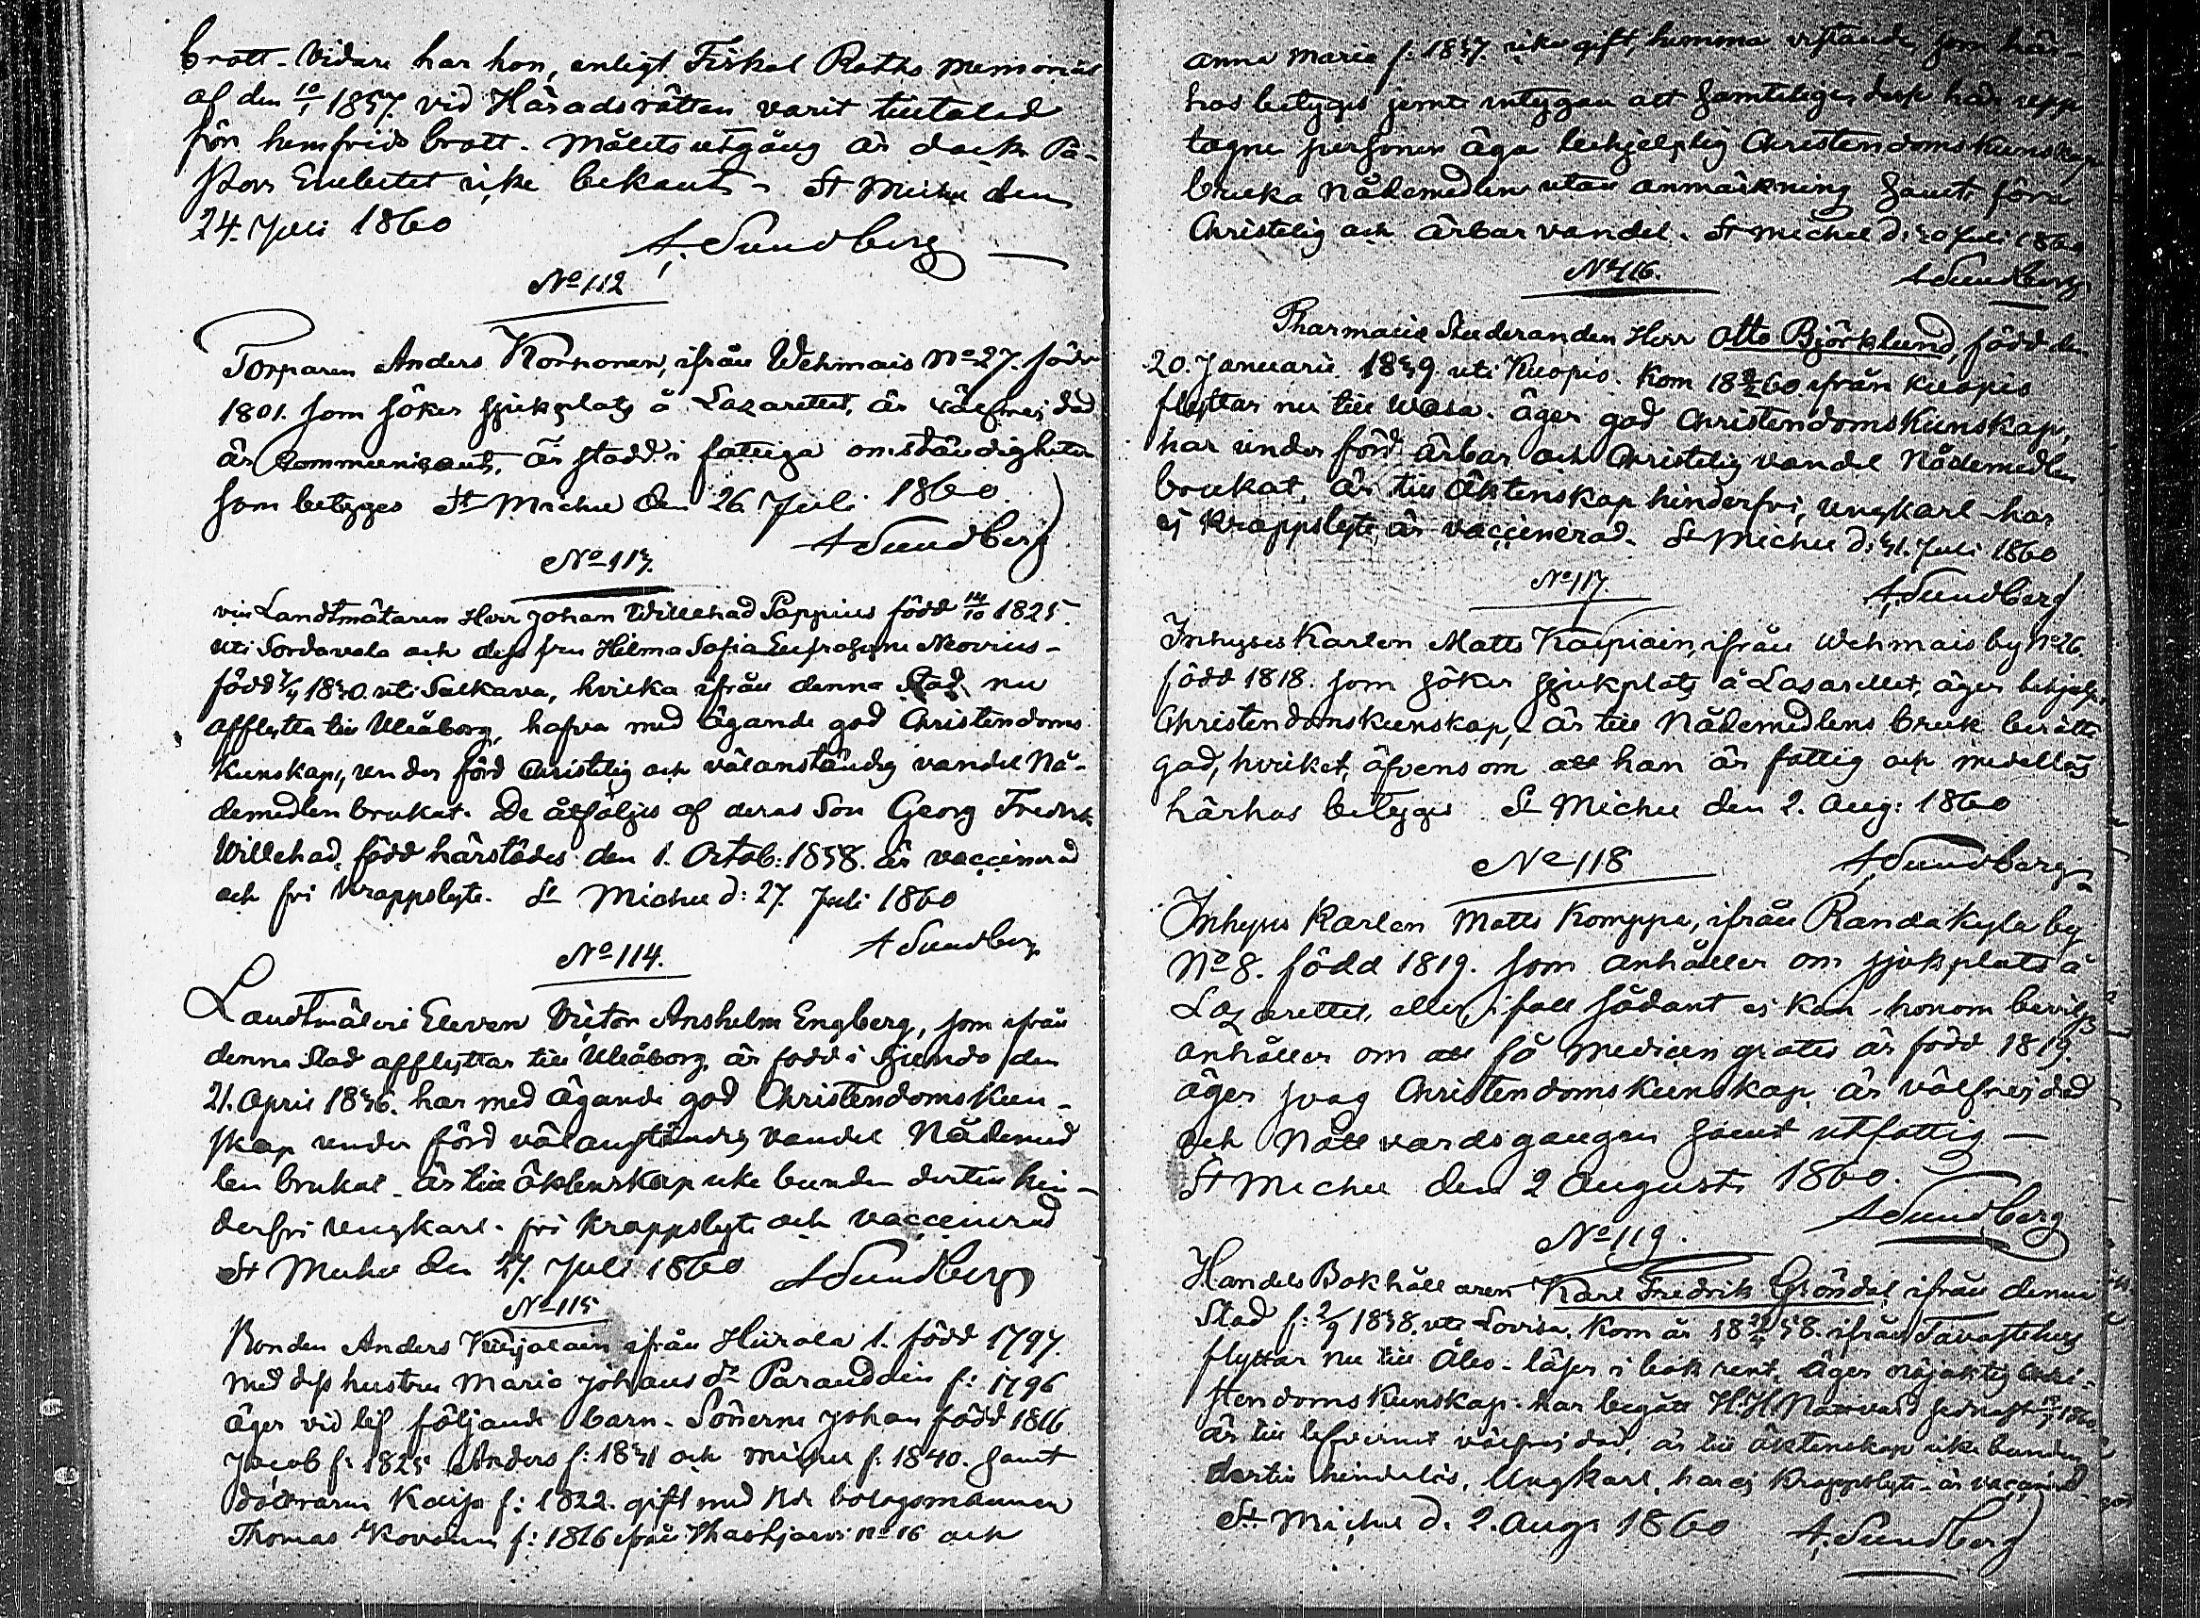 brott. Vidare har hon, enligt Fiskal Raths memorial
af den 10/1 1857. vid Häradsrätten varit tilltalad
för hemfrids brott. Målets utgång är dock Pa-
stors Embetet icke bekant. St Michel den
24. Juli 1860
A. Sundberg
No 112
Torparen Anders Korhonen, ifrån Wehmais No 27. född
1801. som söker sjukplats å Lazarettet, är välfrejdad
är Communicant, är stadd i fattiga omständigheter
som betyges St Michel den 26 Juli 1860.
A Sundberg
No 113.
vice Landtmätaren Herr Johan Willehad Pappius född 14/10 1825.
uti Sordavala och dess fru Hilma Sofia Eufrosyne Movius
född 1830. uti Sulkava, hvilka ifrån denna Stad nu
afflytta till Uleåborg, hafva med ägande god Christendoms
Kunskap, under förd Christelig och välanständig vandel Nå-
demedlen brukat. De åtföljes af deras Son Georg Fredrik
Willehad, född härstädes den 1. Octob: 1858. är vaccinerad
och fri Krappslyte. St Michel d: 27 Juli 1860
A Sundberg
No 114.
Landtmäteri Eleven Victor Anshelm Engberg, som ifrån
denna Stad afflyttar till Uleåborg, är född i Sjundo den
21. April 1836. har med ägande god Christendoms Kun-
skap under förd välanständig vandel Nådemed
len brukat. är till äktenskap icke bunden dertill hin-
derfri Ungkarl. fri Krappslyte och vaccinerad
St Michel den 27. Juli 1860 A Sundberg
No 115
Bonden Anders ifrån Hiirola 1. född 1797.
med dess hustru Maria Johans dr Parauddin f: 1796
äger vid lif följande barn. Sönerne Johan född 1816
Jacob f: 1825 Anders f: 1831 och Michel f: 1840. samt
döttrarne Kaisa f: 1822. gift med bolagsmannen
Thomas Kovanen f: 1816 ifrån No 16 och
anna Maria f: 1837. icke gift, hemma vistande, som här-
hos betyges jemte intygan att samtelige desse här upp
tagne personer äga behjelplig Christendoms Kunskap
bruka Nådemedlen utan anmärkning samt föra
Christelig och ärbar vandel. St Michel d: 30 Juli 1860
No 116.
A Sundberg
Pharmacie Studeranden Herr Otto Björklund, född den
20. Januarii 1839 uti Kuopio. Kom 1860 ifrån Kuopio
flyttar nu till Wasa. äger god Christendoms Kunskap,
har under förd ärbar och Christelig vandel Nådemedlen
brukat, är till Äktenskap hinderfri, ungkarl har
ej Krappslyte är vaccinerad. St Michel d: 31. Juli 1860
No 117.
A. Sundberg
Inhyses Karlen Matts Kaipiain, ifrån Wehmais by No 26.
född 1818. som söker sjukplats å Lasarettet, äger behjelp.
Christendomskunskap, är till Nådemedlens bruk berätti
gad, hvilket, äfvensom att han är fattig och medellös
härhos betyges St Michel den 2. Aug: 1860
No 118
A. Sundberg
Inhyses Karlen Matts Komppa, ifrån Randakyla by
No 8. född 1819. som anhåller om sjukplats å
Lazarettet, eller ifall sådant ej kan honom beviljas
anhåller om att få medicin gratis är född 1819.
äger svag Christendoms Kunskap, är välfrejdad
och Nattvardsgången samt utfattig
St Michel den 2 Augusti 1860.
No 119.
A Sundberg
Handels Bokhållaren Karl Fredrik Gröndal, ifrån denna
Stad f: 2/9 1838. uti Lovisa. Kom år 1858. ifrån Tavastehus
flyttar nu till Åbo. läser i bok rent, äger nöjaktig Chri-
stendoms Kunskap. har begått H. H. Nattvard sednast 1860.
är till lefvernet välfrejdad, är till äktenskap icke bunden
dertill hinderlös, Ungkarl, har ej Krappslyte. är vaccined.
St Michel d. 2. Aug: 1860 A. Sundberg